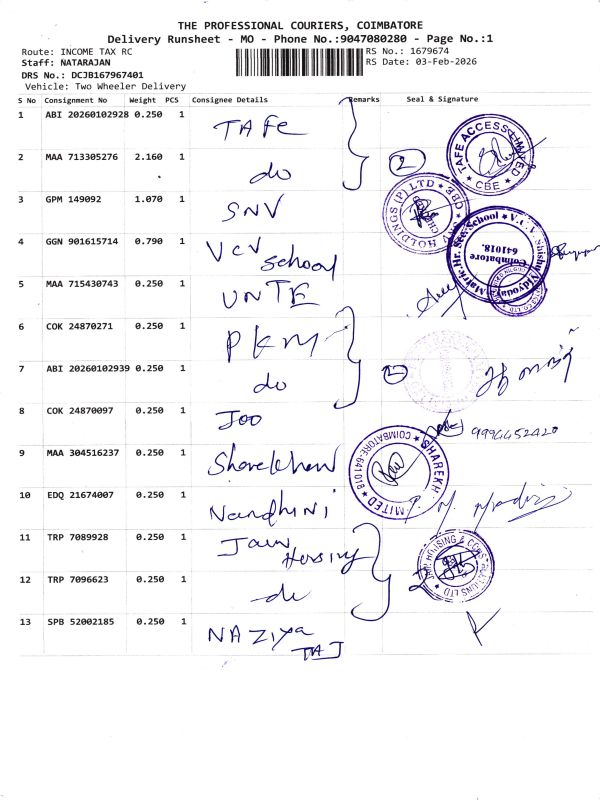 THE PROFESSIONAL COURIERS, COIMBATORE
Delivery Runsheet - MO - Phone No.:9047080280 - Page No.:1
Route: INCOME TAX RC RS No.: 1679674
Staff: NATARAJAN RS Date: 03-Feb-2026
DRS No.: DCJB167967401
Vehicle: Two Wheeler Delivery
S No Consignment No Weight PCS Consignee Details Remarks Seal & Signature
1 ABI 20260102928 0.250 1 TAFE
TAFE ACCESS LIMITED
CBE
2 MAA 713305276 2.160 1 do 2
3 GPM 149092 1.070 1 SNV
SNV HOLDINGS (P) LTD CBE
4 GGN 901615714 0.790 1 VCV School
Matric. Hr. Sec. School V.C.V. Shishu Vidyodaya
Coimbatore
641018.
5 MAA 715430743 0.250 1 UNTE
6 COK 24870271 0.250 1 PKM
7 ABI 20260102939 0.250 1 do 2
8 COK 24870097 0.250 1 Joo 9994452420
9 MAA 304516237 0.250 1 Sharekhan
SHAREKH MITED COIMBATORE-641018
10 EDQ 21674007 0.250 1 Nandhini
11 TRP 7089928 0.250 1 Jain Housing
HOUSING & CONS LTD
12 TRP 7096623 0.250 1 do 2
13 SPB 52002185 0.250 1 NAZIYA
TAJ